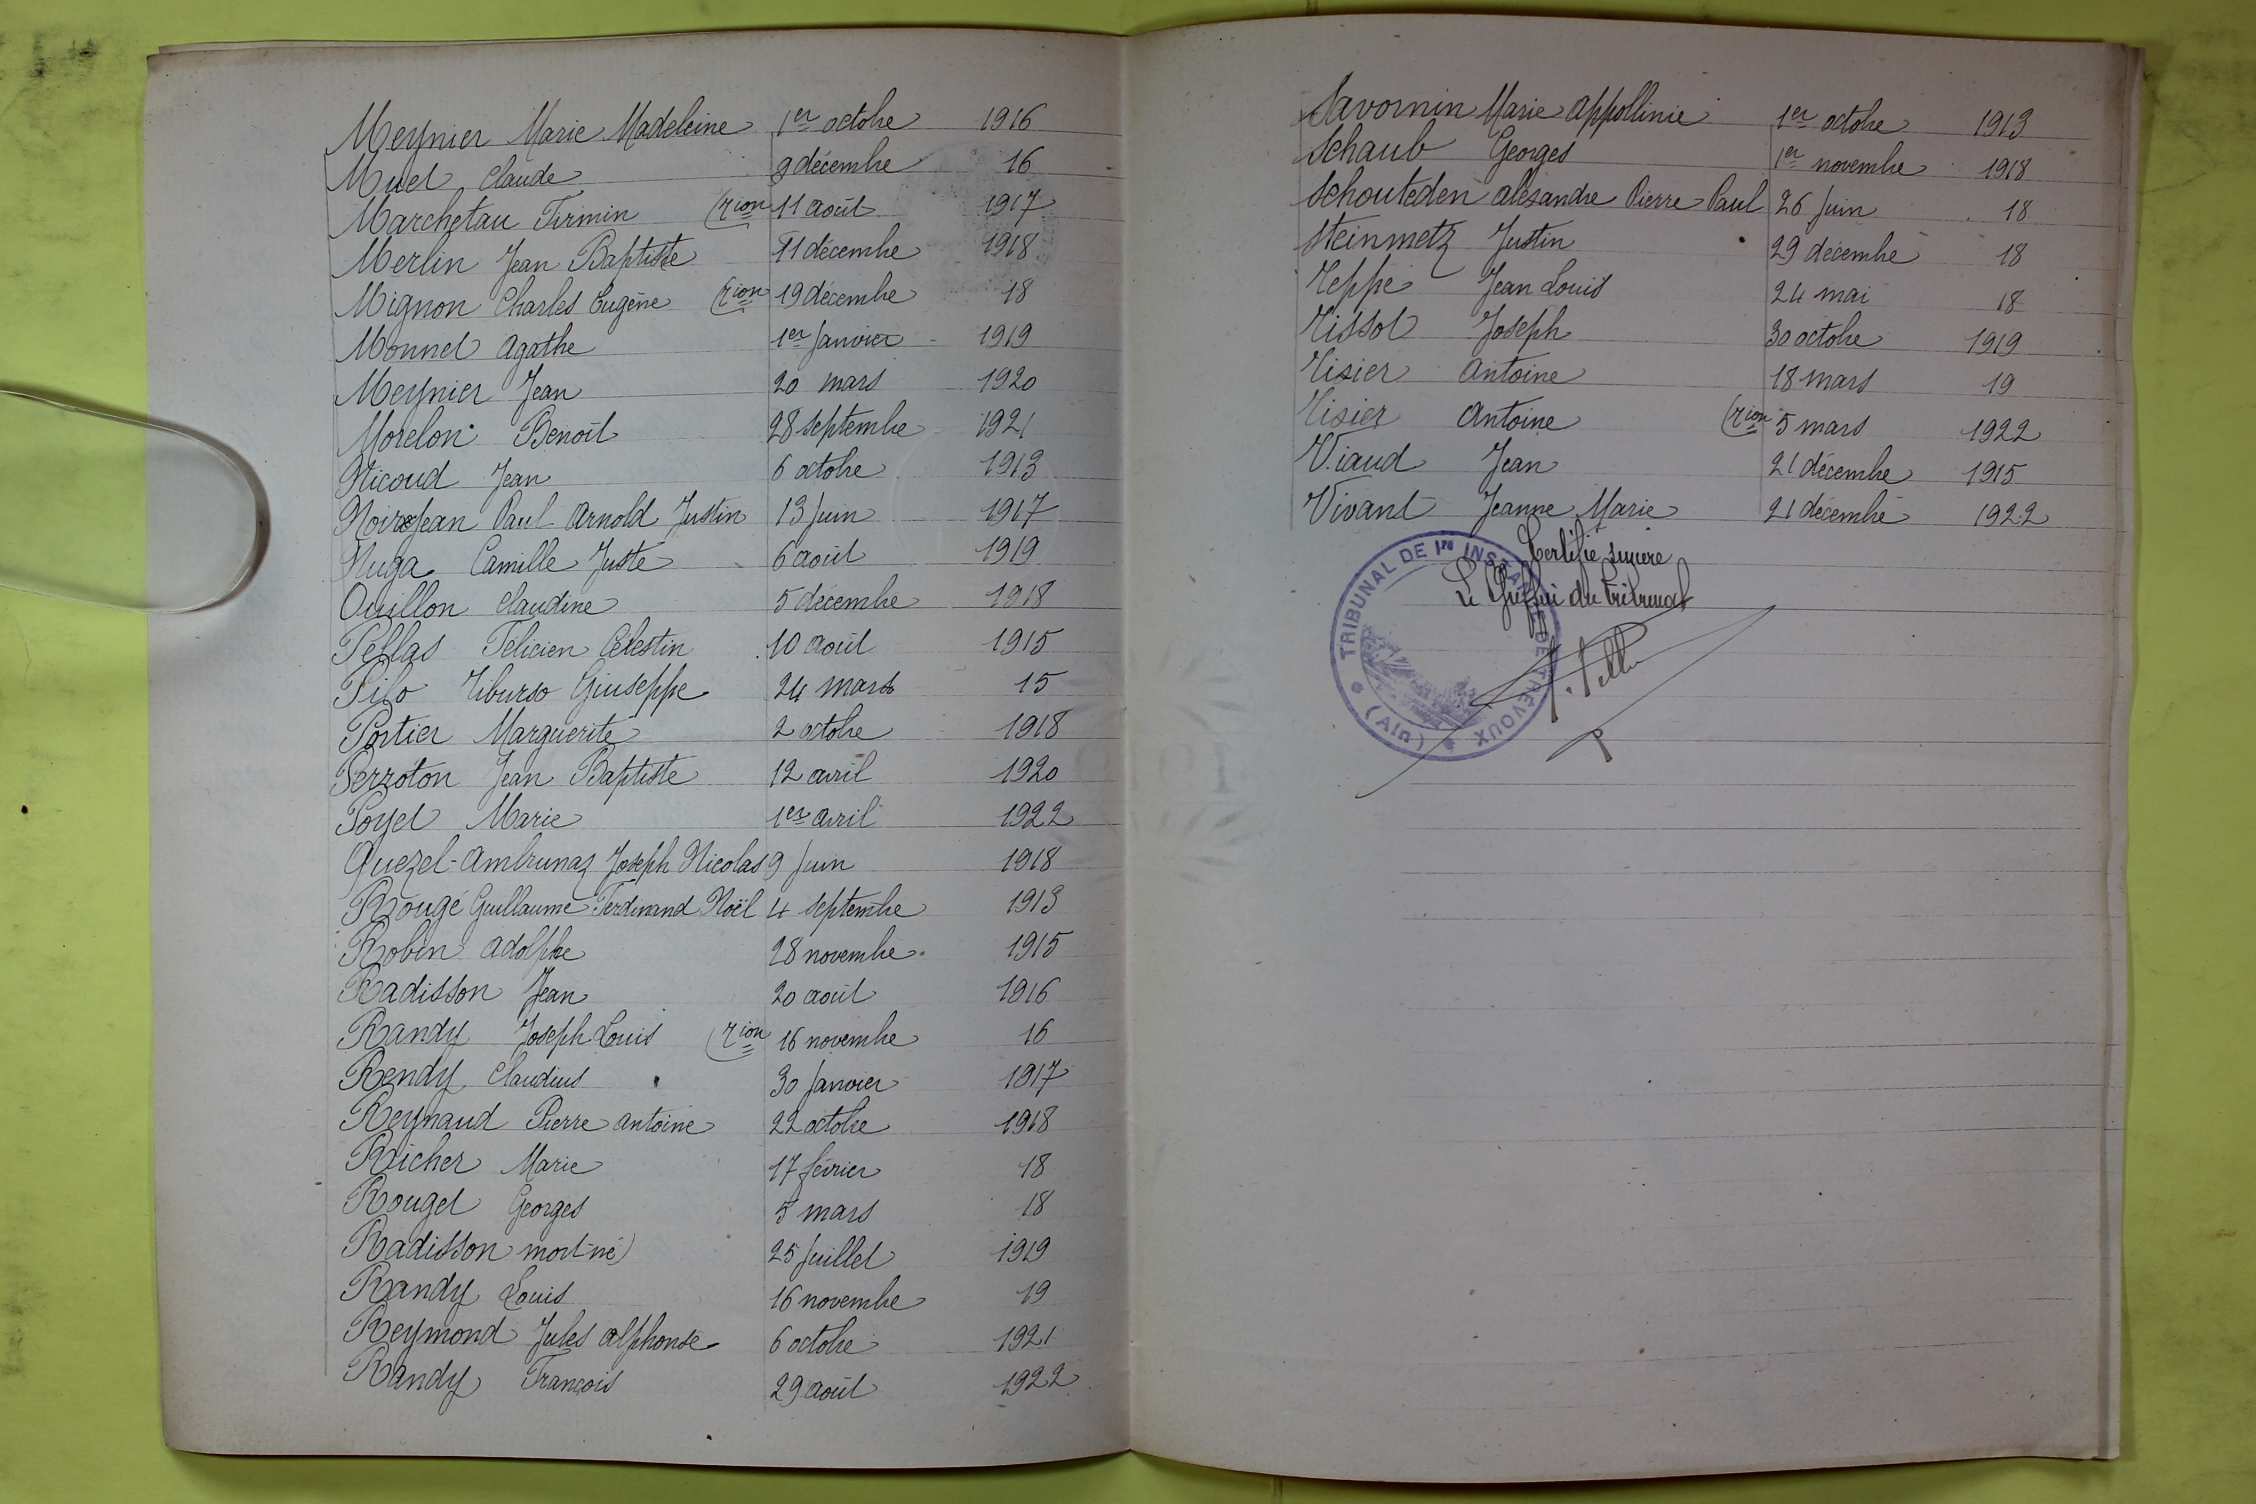 Meynier Marie Madeleine 1er octobre 1916
Muet Claude 9 décembre 16
Marchetau Firmin (rion 11 août 1917
Merlin Jean Baptiste 11 décembre 1918
Mignon Charles Eugène (rion 19 décembre 18
Monnet Agathe 1er Janvier 1919
Meynier Jean 20 mars 1920
Morelon Benoît 28 septembre 1921
Nicoud Jean 6 octobre 1913
Noirjean Paul Arnold Justin 13 Juin 1917
Nuga Camille Juste 6 août 1919
Ouillon Claudine 5 décembre 1918
Pellas Félicien Célestin 10 août 1915
Pilo Tiburso Giuseppe 24 mars 15
Portier Marguerite 2 octobre 1918
Perroton Jean Baptiste 12 avril 1920
Poyet Marie 1er avril 1922
Quezel-Ambrunaz Joseph Nicolas 9 Juin 1918
Rougé Guillaume Ferdinand Noël 4 septembre 1913
Robin Adolphe 28 novembre 1915
Radisson Jean 20 août 1916
Randy Joseph Louis (rion 16 novembre 16
Rendy Claudius 30 Janvier 1917
Reynaud Pierre Antoine 22 octobre 1918
Richer Marie 17 février 18
Rouget Georges 5 mars 18
Radisson mort-né 25 Juillet 1919
Randy Louis 16 novembre 19
Reymond Jules Alphonse 6 octobre 1921
Randy François 29 août 1922
Savornin Marie Appollinie 1er octobre 1913
Schaub Georges 1er novembre 1918
Schouteden Alesandre Pierre-Paul 26 Juin 18
Steinmetz Justin 29 décembre 18
Teppe Jean Louis 24 mai 18
Tissot Joseph 30 octobre 1919
Tisier Antoine 18 mars 19
Tisier Antoine (rion 5 mars 1922
Viaud Jean 21 décembre 1915
Vivant Jeanne Marie 21 décembre 1922
Certifié sincère
Le Greffier du Tribunal
TRIBUNAL DE 1re INSTANCE DE TRÉVOUX
(Ain)